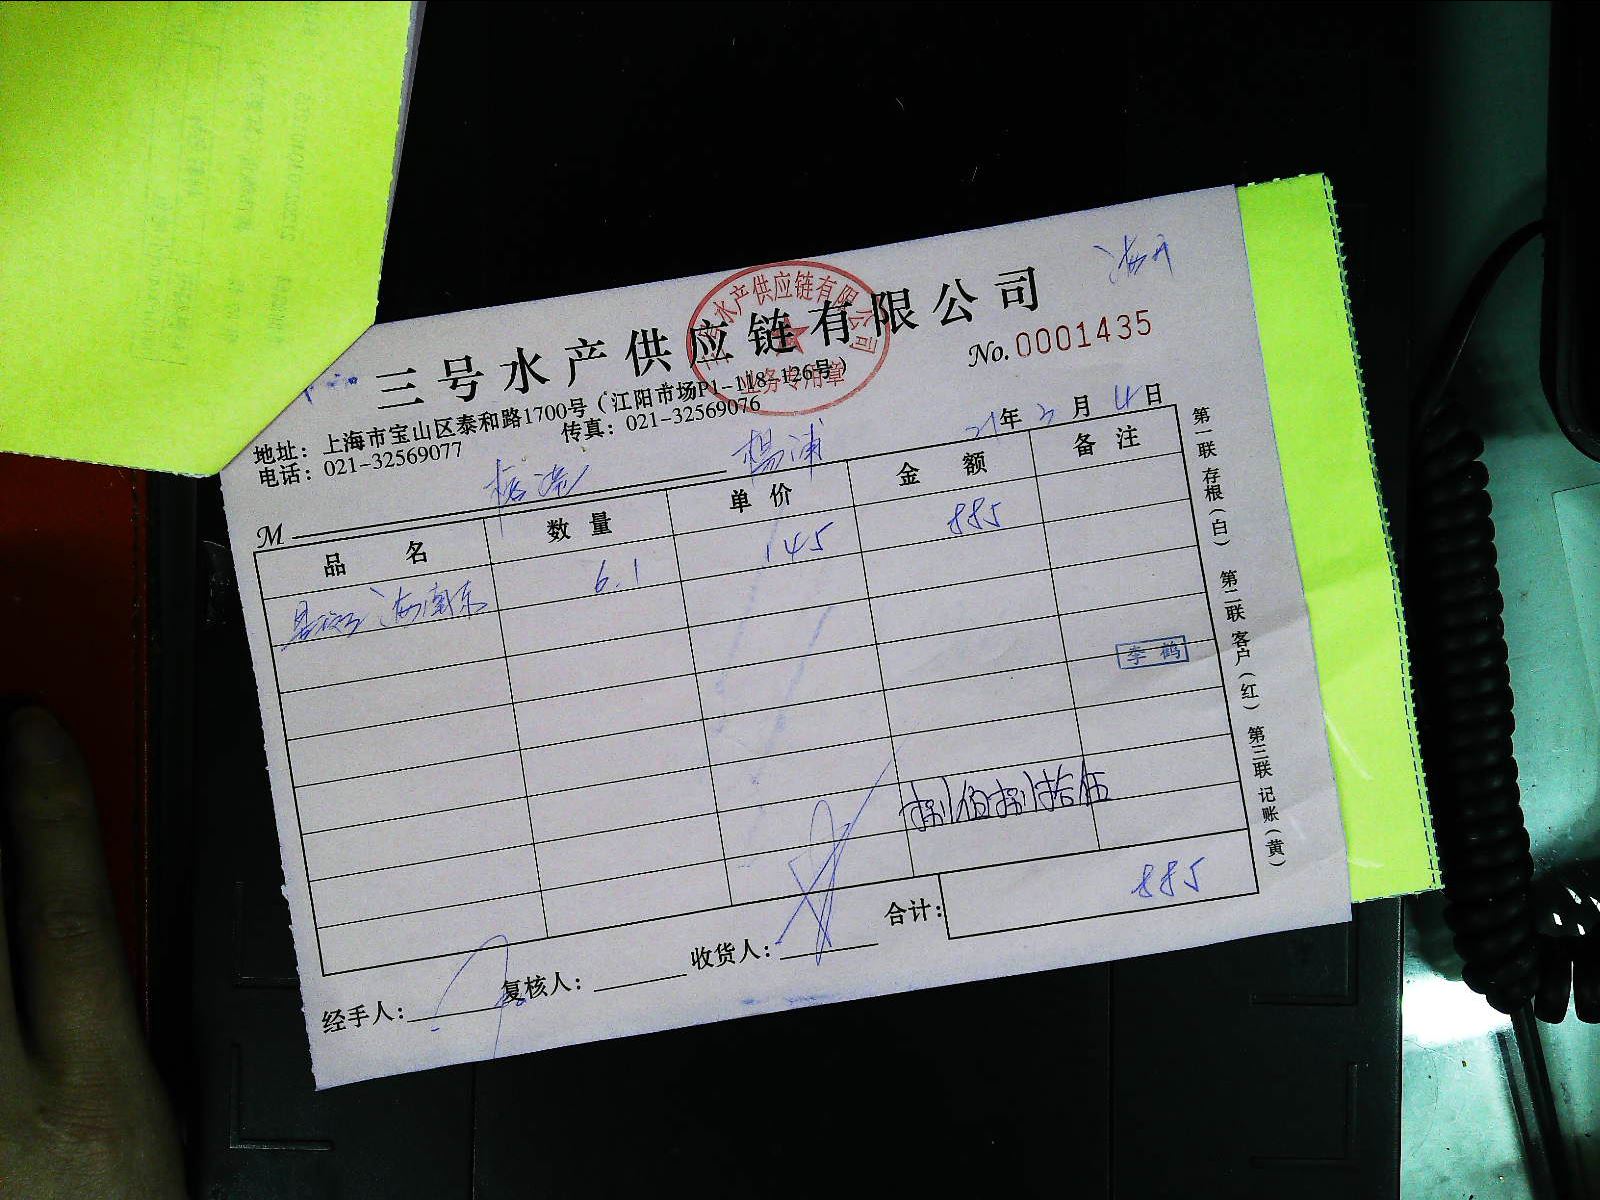 海丹
三号水产供应链有限公司
水产供应链有限公司
业务专用章
No.0001435
地址：上海市宝山区泰和路1700号（江阳市场P1-118-126号）
电话：021-32569077 传真：021-32569076
21年3月4日
M 杨浦
品名 数量 单价 金额 备注
海南东 6.1 145 885
李鹤
捌佰捌拾伍
合计： 885
经手人： 复核人： 收货人：
第一联 存根（白） 第二联 客户（红） 第三联 记账（黄）